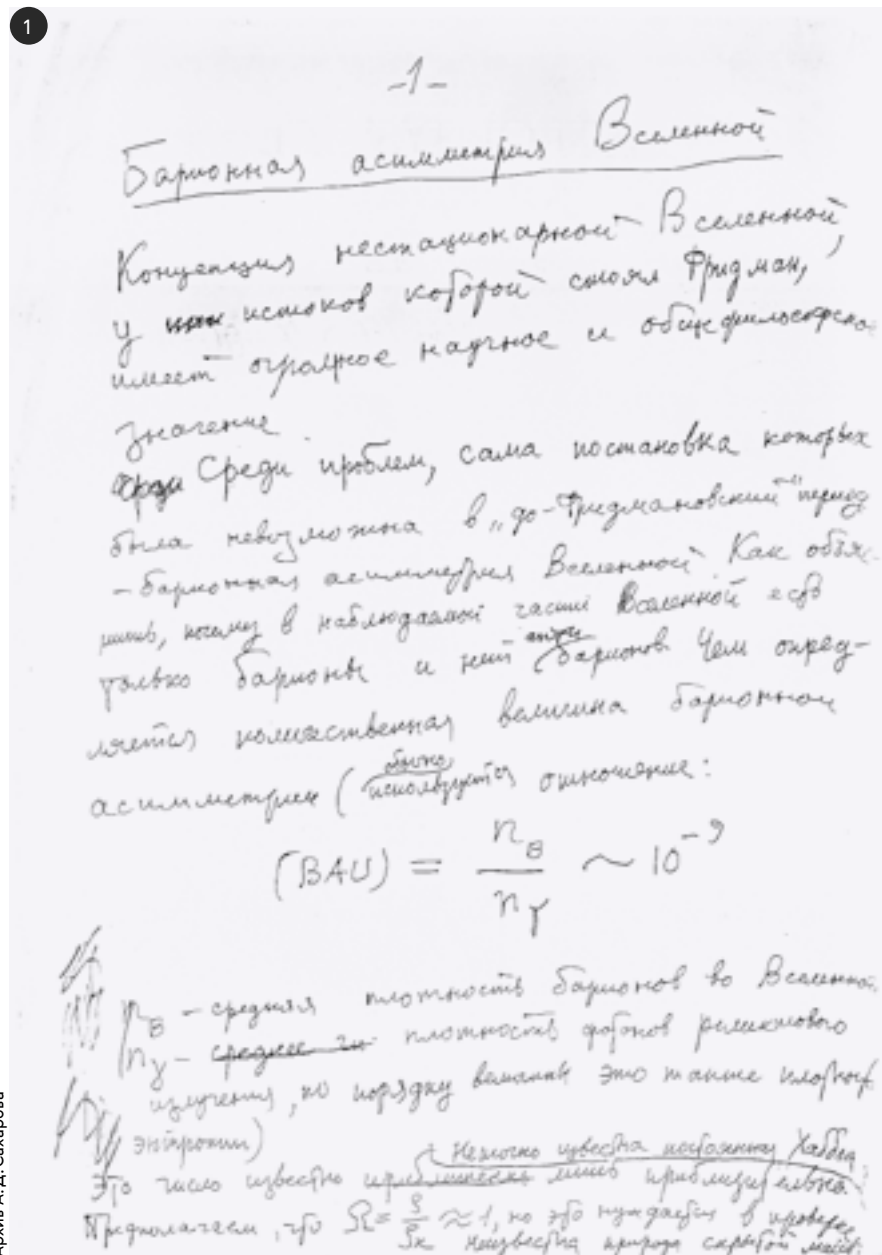 1
-1-
Барионная асимметрия Вселенной
Концепция нестационарной Вселенной,
у истоков которой стоял Фридман,
имеет огромное научное и общефилософское
значение
Среди проблем, сама постановка которых
была невозможна в „до-Фридмановский" период
- барионная асимметрия Вселенной. Как объяс-
нить, почему в наблюдаемой части Вселенной есть
только барионы и нет антибарионов. Чем опред-
ляется количественная величина барионной
асимметрии (обычно используется отношение:
(BAU) = n_B / n_γ ~ 10^-9
n_B - средняя плотность барионов во Вселенной.
n_γ - среднее плотность фотонов реликтового
излучения, по порядку величины это также плотность
энтропии)
Неточно известна постоянная Хаббла,
Это число известно лишь приблизительно.
Предполагаем, что Ω = ρ/ρк ≈ 1, но это нуждается в проверке,
неизвестна природа скрытой массы
Архив А. Д. Сахарова